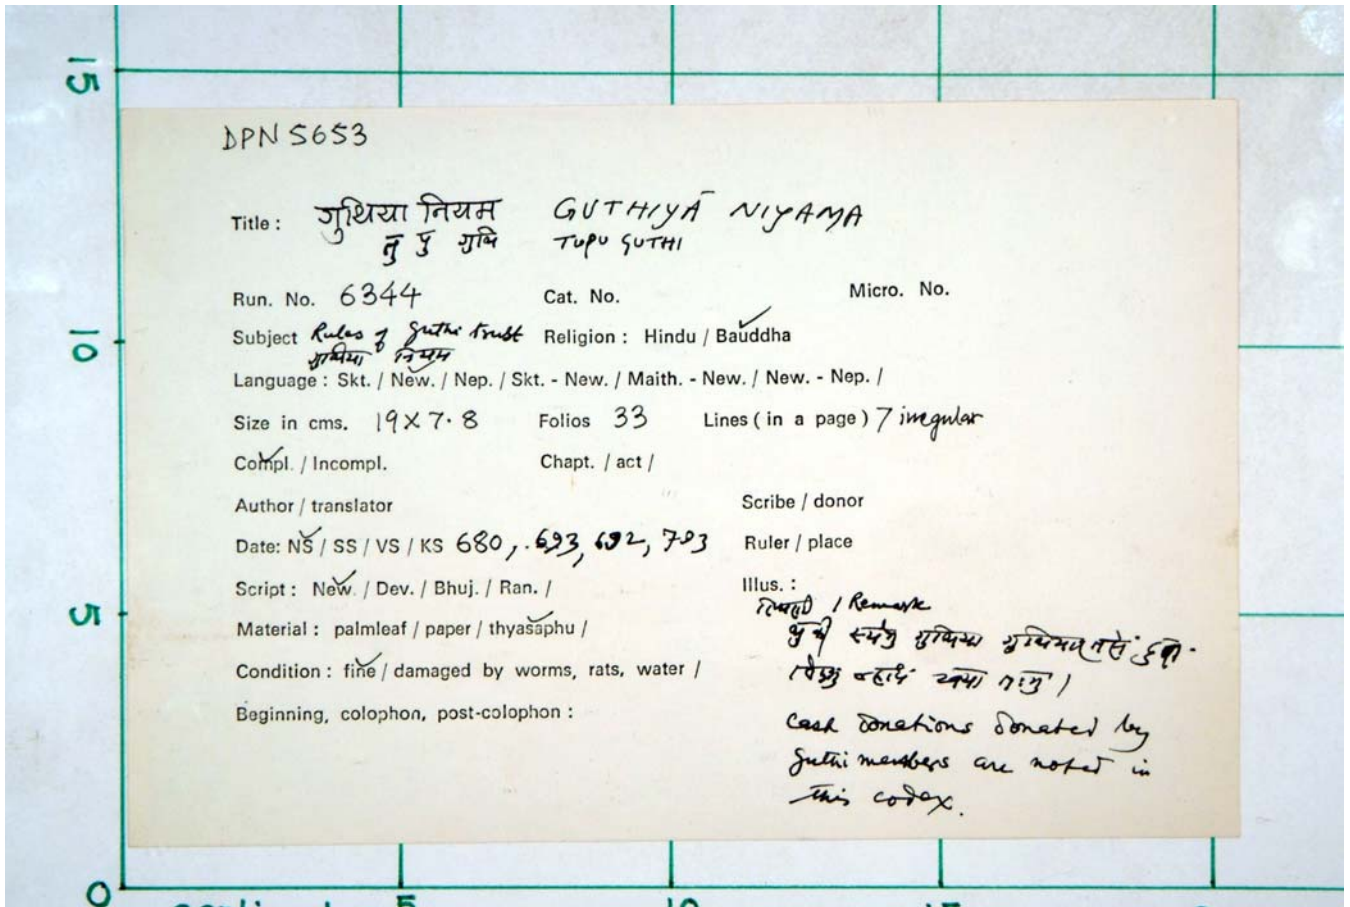 15
DPN 5653
Title : गुथिया नियम GUTHIYĀ NIYAMA
तु पु गुथि TUPU GUTHI
Run. No. 6344 Cat. No. Micro. No.
Subject Rules of guthi trust Religion : Hindu / Bauddha
गुथिया नियम
10
Language : Skt. / New. / Nep. / Skt. - New. / Maith. - New. / New. - Nep. /
Size in cms. 19 X 7.8 Folios 33 Lines ( in a page ) 7 irregular
Compl. / Incompl. Chapt. / act /
Author / translator Scribe / donor
Date: NS / SS / VS / KS 680, 693, 692, 793 Ruler / place
Script : New. / Dev. / Bhuj. / Ran. / Illus. :
5
/ Remark
Material : palmleaf / paper / thyasaphu /
गुथिया
Condition : fine / damaged by worms, rats, water /
Beginning, colophon, post-colophon :
Cash donations donated by
guthi members are noted in
this codex.
0
5 10 15